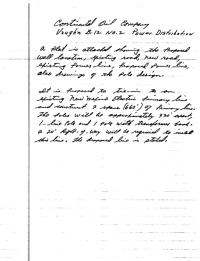 Continental Oil Company
Vaughn B-12 No. 2 Power Distribution
A plat is attached showing the proposed
well location, existing road, new road,
existing power line, proposed power line,
also drawings of the pole design.
It is proposed to tie-in to an
existing New Mexico Electric primary line
and construct 2 spans (660') of primary line.
The poles will be approximately 330' apart,
1 - line pole and 1 pole with transformer bank.
a 20' right-of-way will be required to install
this line. The proposed line is staked.